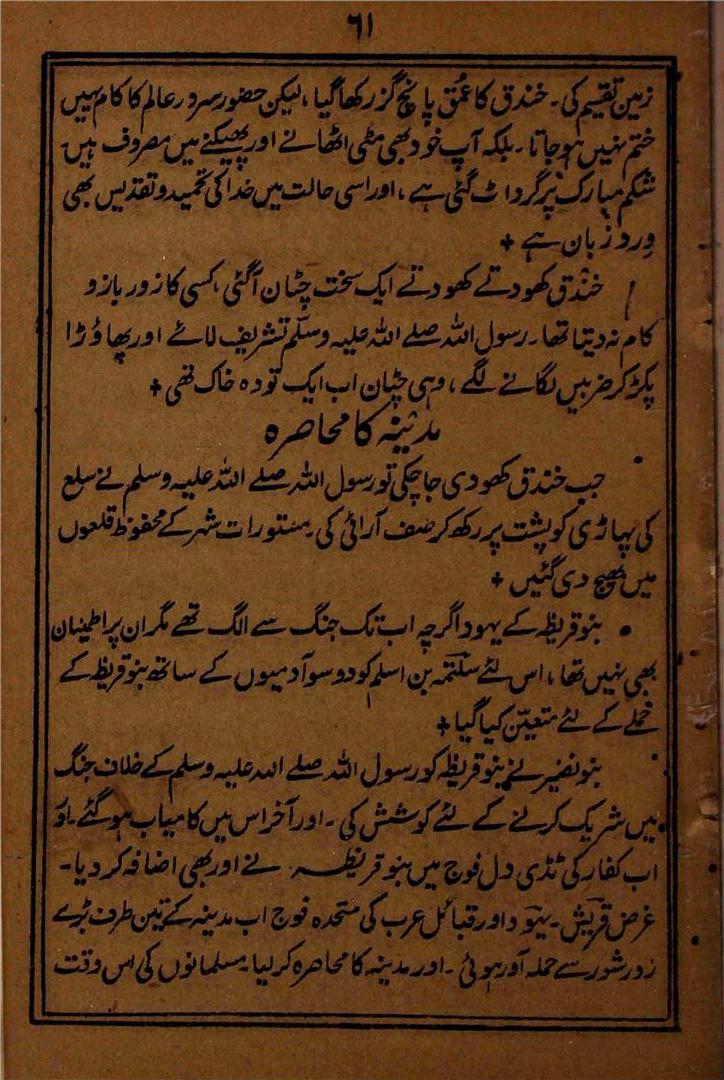 ٦١
زمین تقسیم کی۔ خندق کا عمُق پانچ گز رکھا گیا، لیکن حضور سرور عالم کا کام یہیں
ختم نہیں ہو جاتا۔ بلکہ آپ خود بھی مٹی اٹھانے اور پھینکنے میں مصروف ہیں۔
شکم مبارک پر گرد اٹ گئی ہے، اور اسی حالت میں خدا کی تحمید و تقدیس بھی
وردِ زبان ہے +
خندق کھودتے کھودتے ایک سخت چٹان آگئی، کسی کا زور بازو
کام نہ دیتا تھا۔ رسول اللہ صلے اللہ علیہ وسلّم تشریف لائے اور پھاؤڑا
پکڑ کر ضربیں لگانے لگے، وہی چٹان اب ایک تودہ خاک تھی +
مدینہ کا محاصرہ
جب خندق کھودی جا چکی تو رسول اللہ صلے اللہ علیہ وسلم نے سلع
کی پہاڑی کو پشت پر رکھ کر صف آرائی کی۔ مستورات شہر کے محفوظ قلعوں
میں بھیج دی گئیں +
بنو قریظہ کے یہود اگرچہ اب تک جنگ سے الگ تھے مگر ان پر اطمینان
بھی نہیں تھا، اس لئے سلمہ بن اسلم کو دو سو آدمیوں کے ساتھ بنو قریظہ کے
حملے کے لئے متعیّن کیا گیا +
بنو نضیر نے بنو قریظہ کو رسول اللہ صلے اللہ علیہ وسلم کے خلاف جنگ
میں شریک کرنے کے لئے کوشش کی۔ اور آخر اس میں کامیاب ہو گئے۔ اَو
اب کفار کی ٹڈی دل فوج میں بنو قریظہ نے اور بھی اضافہ کر دیا۔
غرض قریش۔ یہود اور قبائل عرب کی متحدہ فوج اب مدینہ کے تین طرف بڑے
زور شور سے حملہ آور ہوئی۔ اور مدینہ کا محاصرہ کر لیا۔ مسلمانوں کی اس وقت